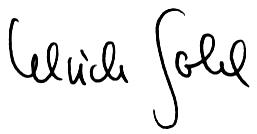 Ulrich Gohl